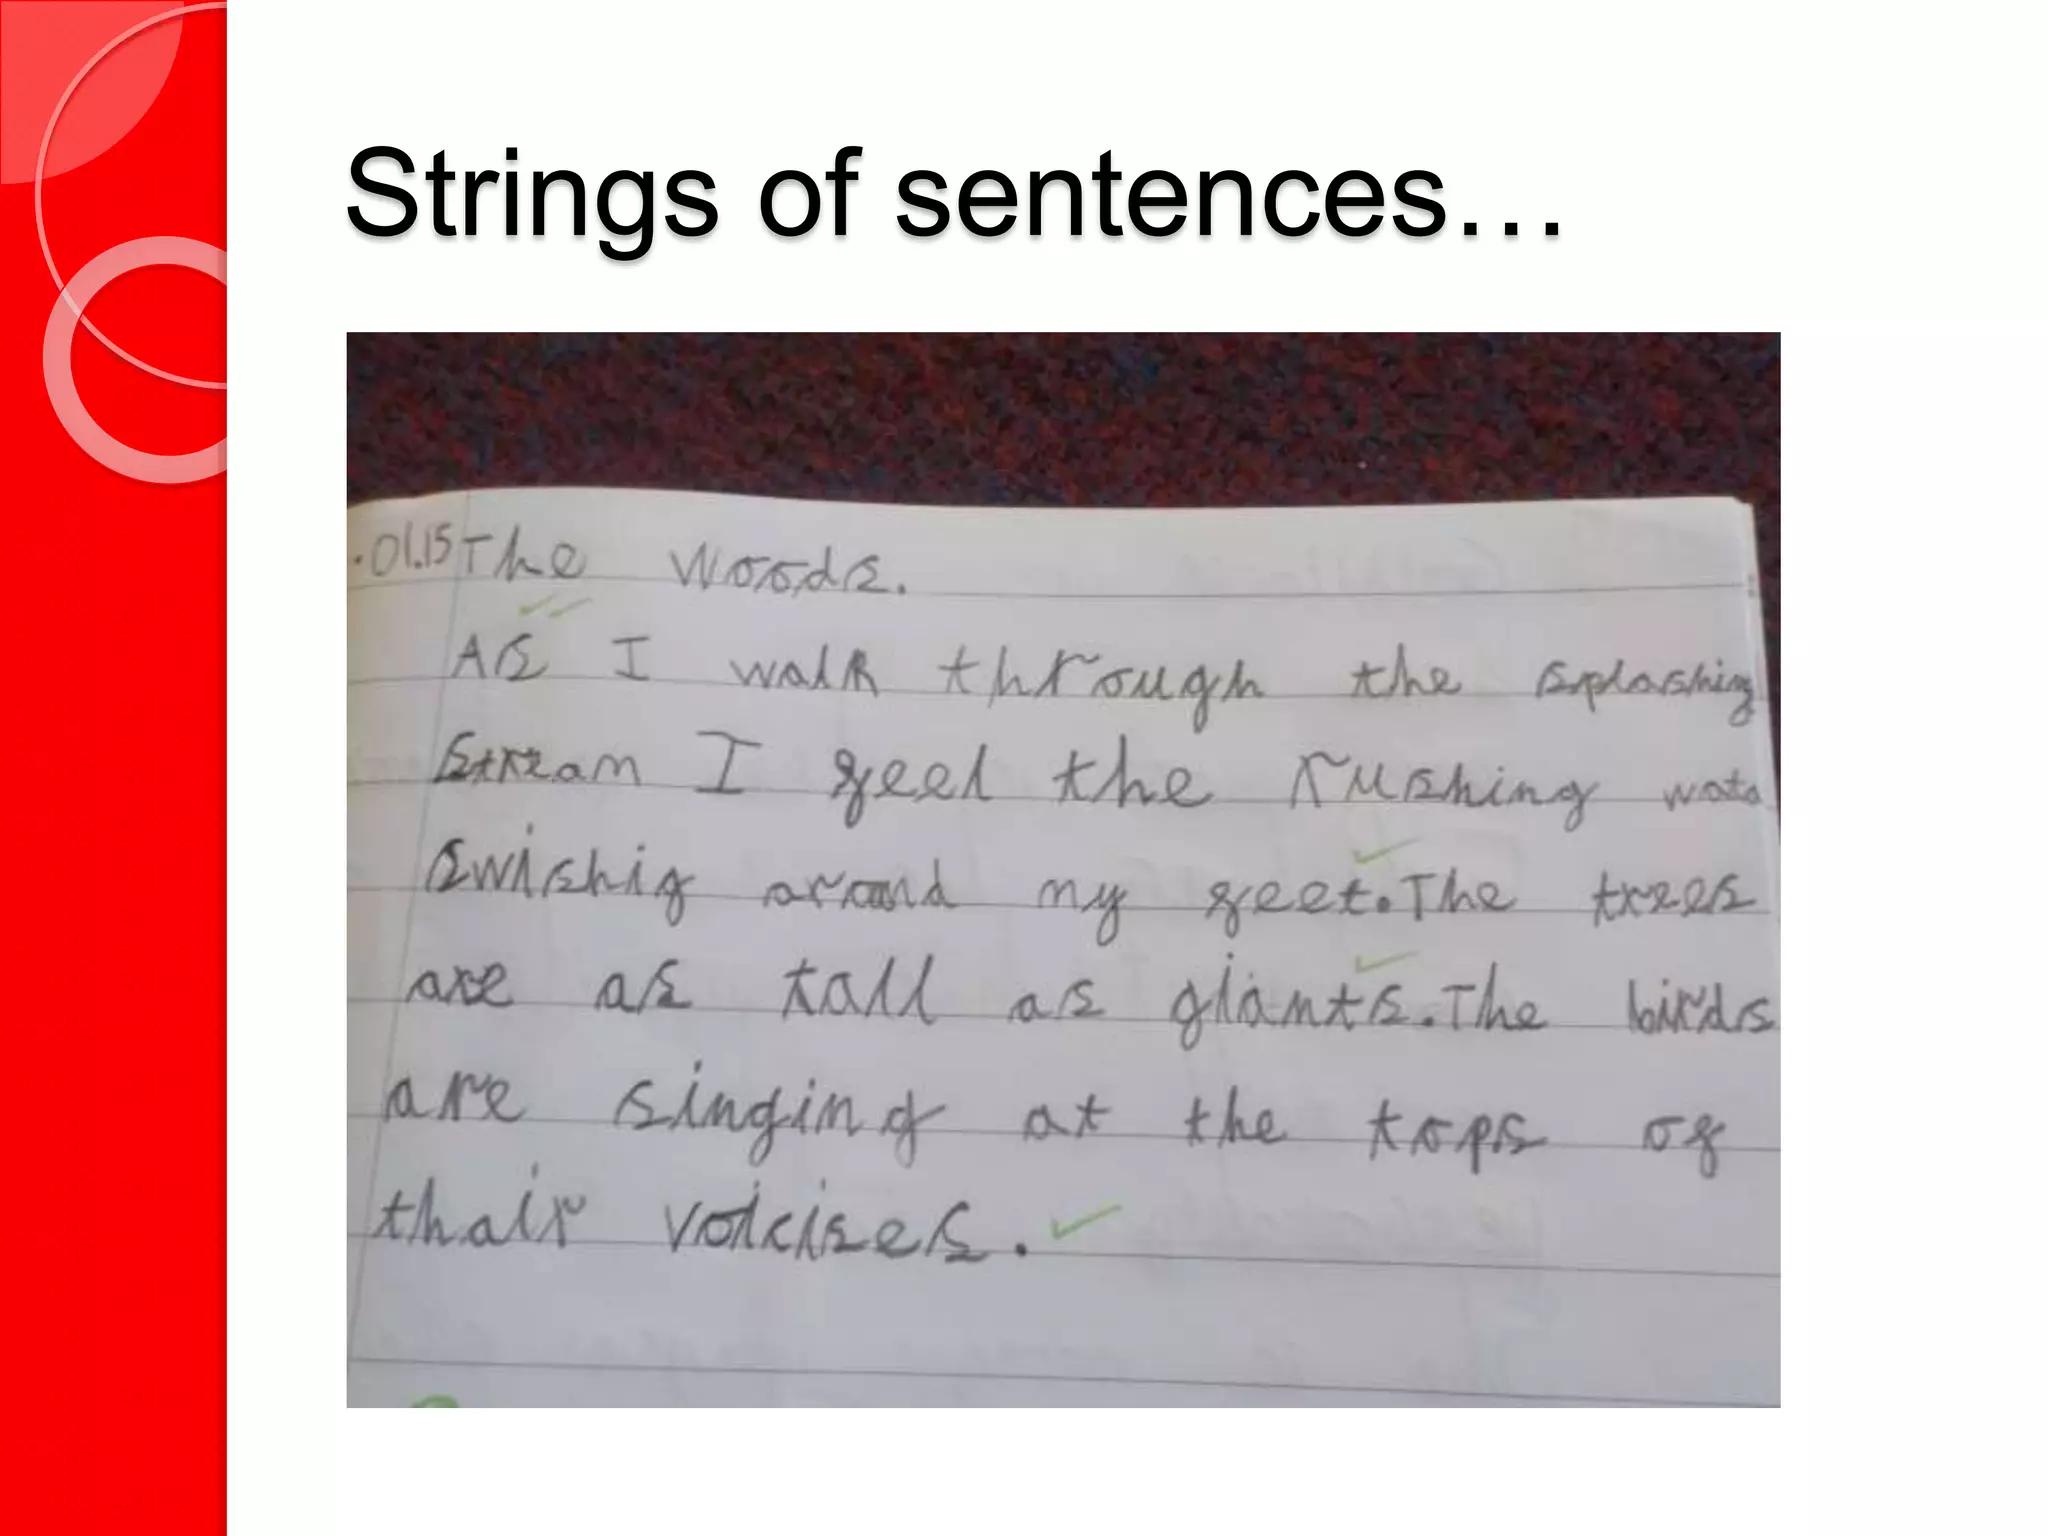 Strings of sentences…
.01.15 The Woods.
As I walk through the splashing
stream I feel the rushing
swishig around my feet. The trees
are as tall as giants. The birds
are singing at the tops of
thair voicises.